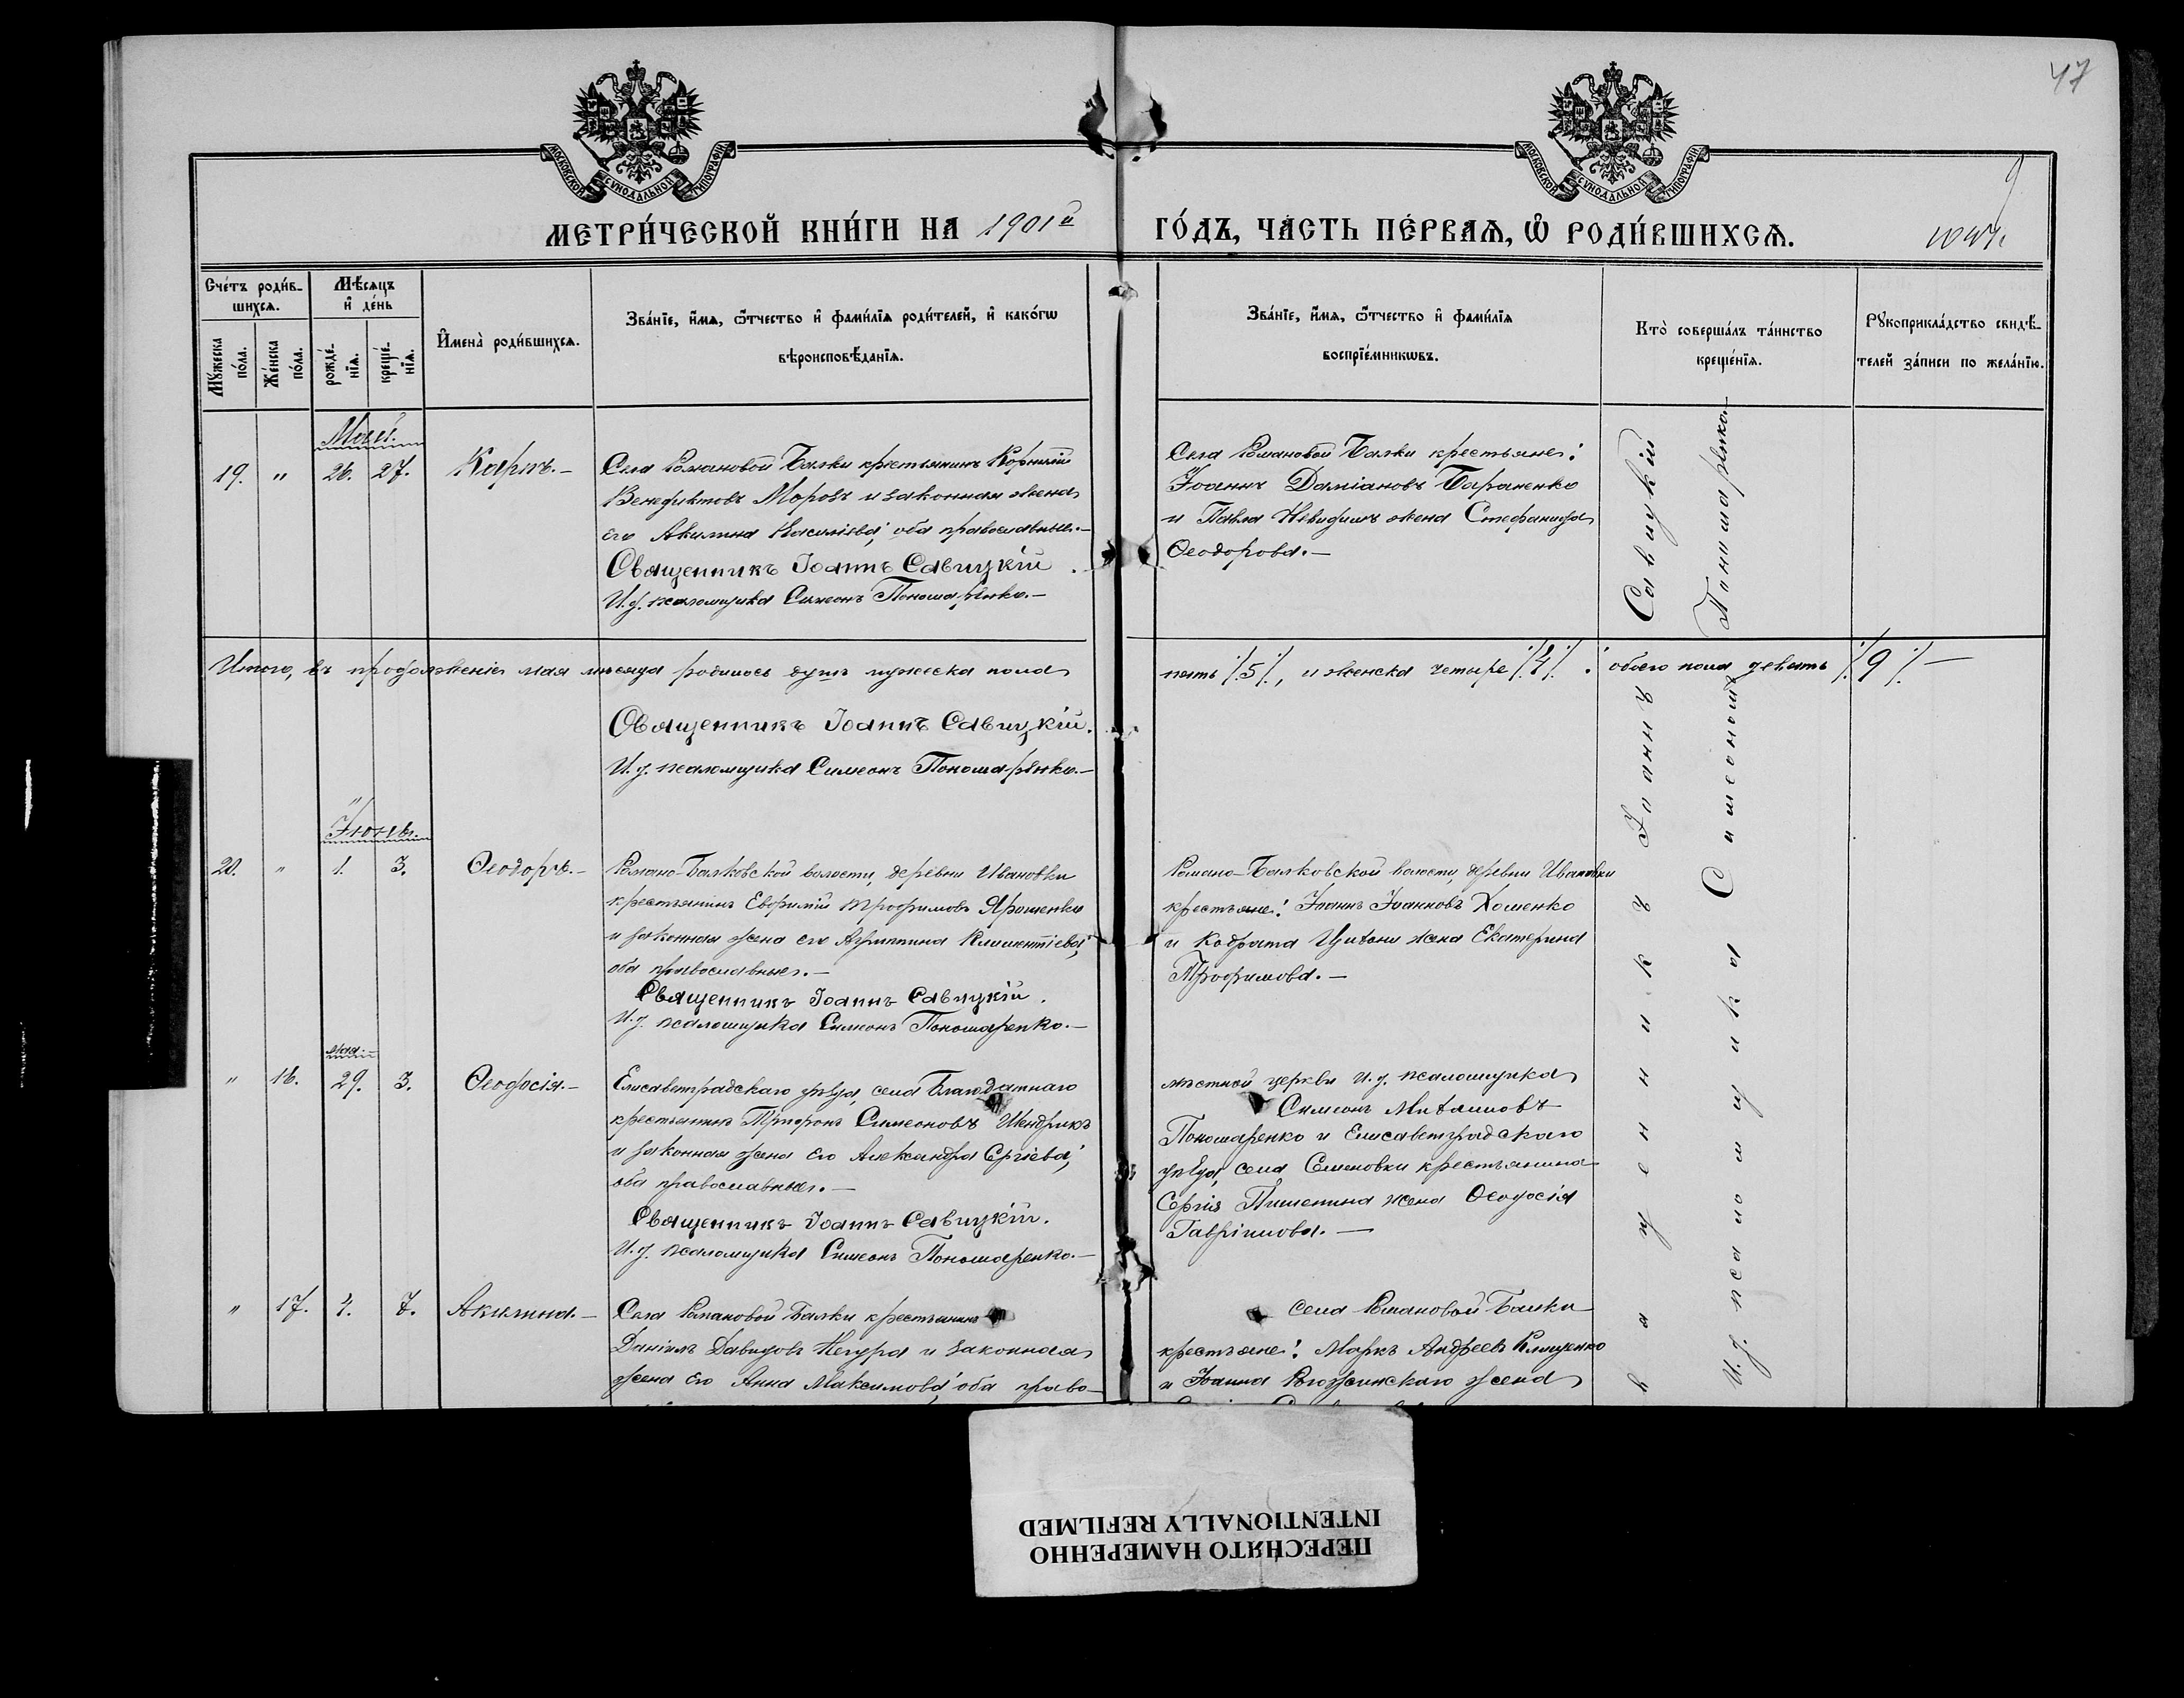 47
МОСКОВСКОЙ СУНОДАЛЬНОЙ ТИПОГРАФІИ
МОСКОВСКОЙ СУНОДАЛЬНОЙ ТИПОГРАФІИ
9
МЕТРИ́ЧЕСКОЙ КНИ́ГИ НА 1901й ГО́ДЪ, ЧА́СТЬ ПЕ́РВАѦ, Ѡ РОДИ́ВШИХСѦ.
Сче́тъ роди́в-
шихсѧ.
Мꙋжеска по́ла.
Же́нска по́ла.
Мѣ́сѧцъ
и҆ де́нь
рожде́-нїѧ.
креще́-нїѧ.
И҆мена̀ роди́вшихсѧ.
Зва́нїе, и҆́мѧ, ѻ҆́тчество и҆ фами́лїѧ роди́телей, и҆ како́гѡ
вѣроисповѣ́данїѧ.
Зва́нїе, и҆́мѧ, ѻ҆́тчество и҆ фами́лїѧ
воспрїе́мникѡвъ.
Кто̀ соверша́лъ та́инство
креще́нїѧ.
Рꙋкоприкла́дство свидѣ́-
телей за́писи по жела́нїю.
Май.
19. " 26. 27. Карпъ.-
Села Романовой Балки крестьянинъ Корнилій
Венедиктовъ Моровъ и законная жена
его Акилина Василіева, оба православные.-
Священникъ Іоаннъ Савицкій.
И.д. псаломщика Симеонъ Пономаренко.-
Села Романовой Балки крестьяне:
Іоаннъ Даміановъ Бараненко
и Павла жена Стефанида
Ѳеодорова.-
Итого, въ продолженіе мая мѣсяца родилось душъ мужеска пола пять /5/, и женска четыре /4/. обоего пола девять /9/-
Священникъ Іоаннъ Савицкій.
И.д. псаломщика Симеонъ Пономаренко.-
Іюнь.
20. " 1. 3. Ѳеодоръ.-
Романо-Балковской волости, деревни Ивановки
крестьянинъ Евфимій Трофимовъ Ярошенко
и законная жена его Агриппина Климентіева,
оба православные.-
Священникъ Іоаннъ Савицкій.
И.д. псаломщика Симеонъ Пономаренко.-
Романо-Балковской волости, деревни Ивановки
крестьяне: Іоаннъ Іоанновъ Хоменко
и Кодрата жена Екатерина
Трофимова.-
мая
" 16. 29. 3. Ѳеодосія.-
Елисаветградскаго уѣзда, села Благодатнаго
крестьянинъ Трифонъ Симеоновъ Шендрикъ
и законная жена его Александра Сергіева,
оба православные.-
Священникъ Іоаннъ Савицкій.
И.д. псаломщика Симеонъ Пономаренко.-
мѣстной церкви И.д. псаломщика
Симеонъ Михаиловъ
Пономаренко и Елисаветградскаго
уѣзда, села Семеновки крестьянина
Сергія жена Ѳеодосія
Гавріилова.-
" 17. 4. 7. Акилина.-
Села Романовой Балки крестьянинъ
Даніилъ Давидовъ Негура и законная
жена его Анна Максимова, оба право-
села Романовой Балки
крестьяне: Маркъ Андреевъ Клименко
и Іоанна жена
Священникъ Іоаннъ Савицкій
И.д. псаломщика Симеонъ Пономаренко
ПЕРЕСНЯТО НАМЕРЕННО
INTENTIONALLY REFILMED